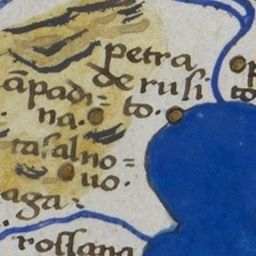 petra
de rusi
to.
cāpadi=
na.
casalno=
uo.
aga.
rossana
p
to